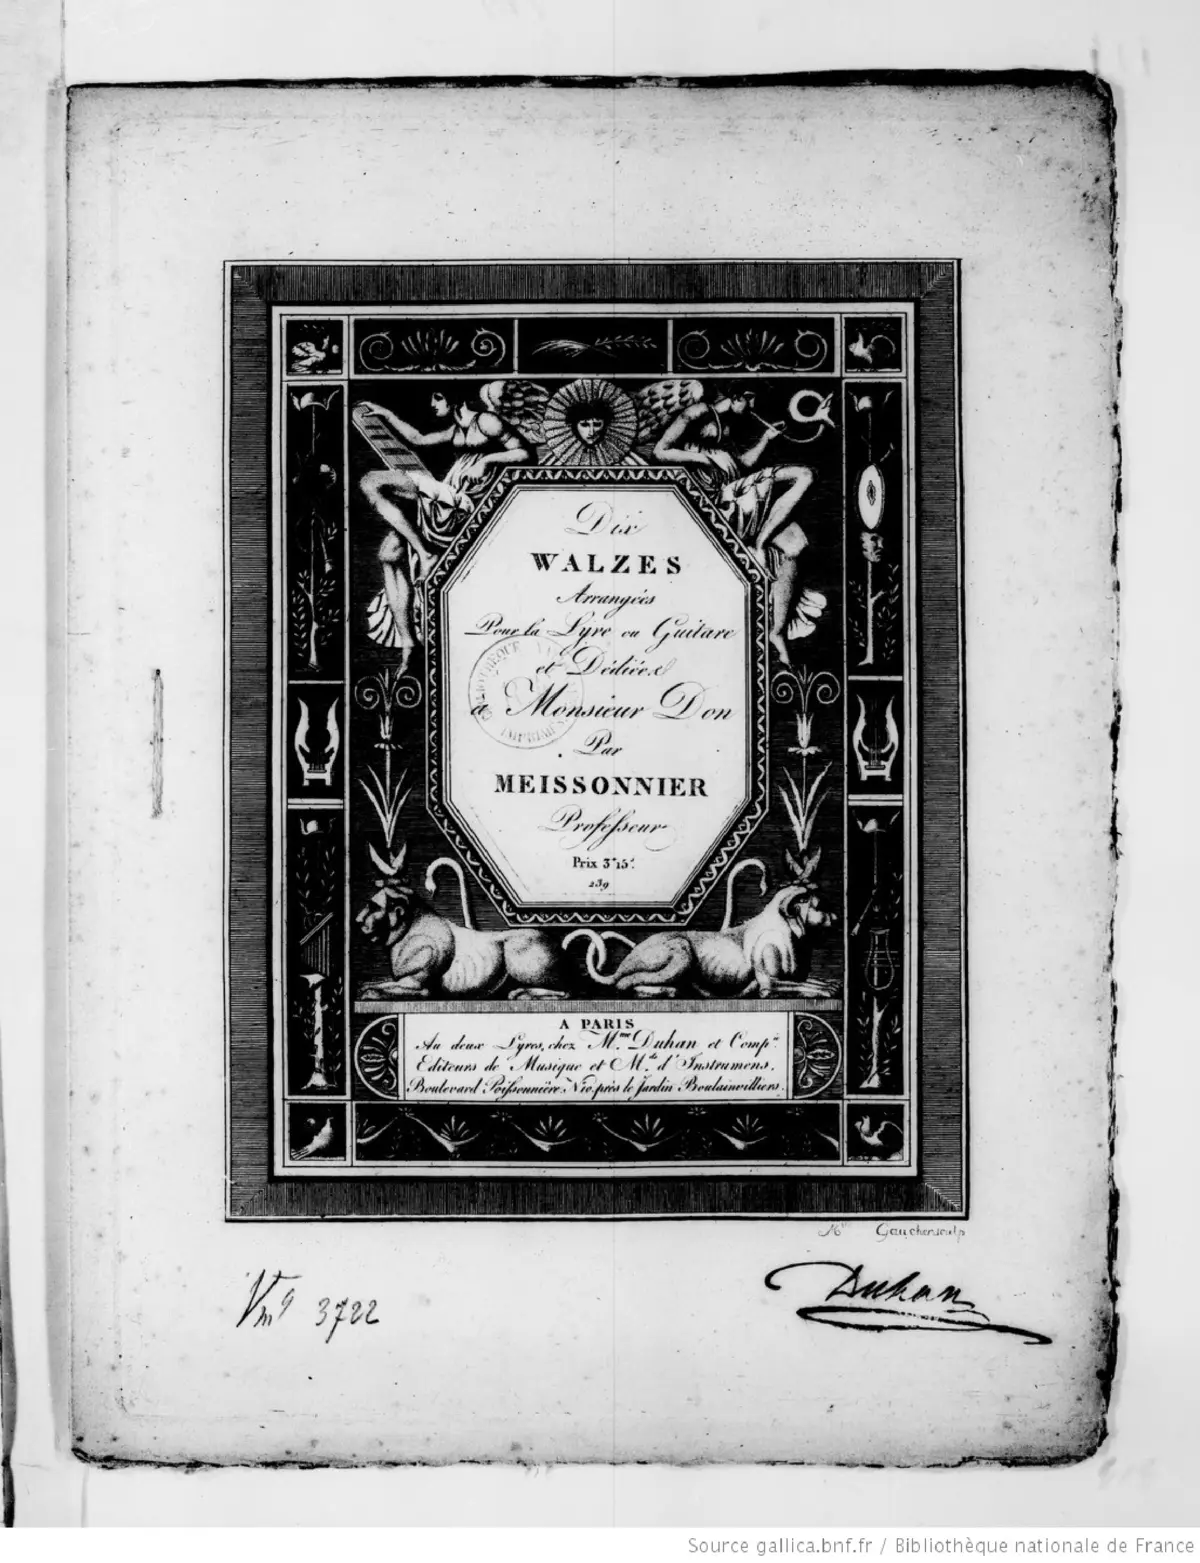 Dix
WALZES
Arrangées
Pour la Lyre ou Guitare
et Dédiées
a Monsieur Don
Par
MEISSONNIER
Professeur
Prix 3# 15s
239
A PARIS
Au deux Lyres, chez Mme Duhan et Compie
Editeurs de Musique et Mds d'Instrumens,
Boulevard Poissonnière No 10. près le Jardin Boulainvilliers.
Gaucher sculp
Vm9 3722
Duhan
Source gallica.bnf.fr / Bibliothèque nationale de France